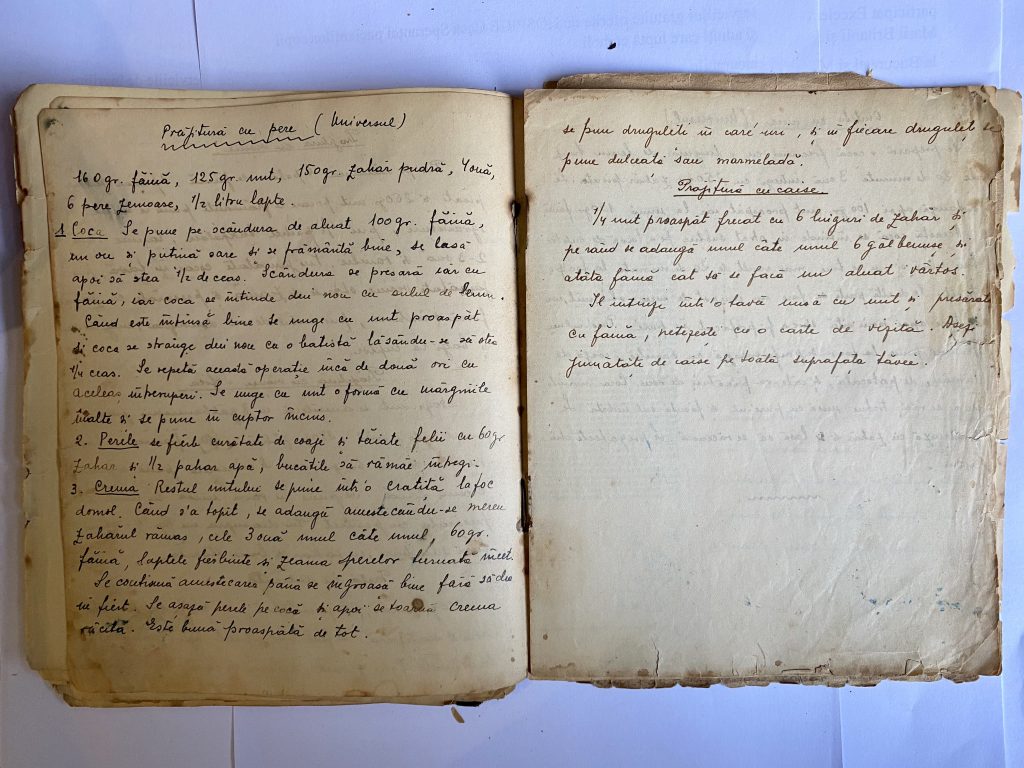 Prăjitură cu pere (Universul)
160 gr. făină, 125 gr. unt, 150 gr. zahăr pudră, 4 ouă,
6 pere zemoase, 1/2 litru lapte.
1 Coca Se pune pe scândura de aluat 100 gr. făină,
un ou și puțină sare și se frământă bine, se lasă
apoi să stea 1/2 de ceas. Scândura se presară iar cu
făină, iar coca se întinde din nou cu sulul de lemn.
Când este întinsă bine se unge cu unt proaspăt
și coca se strânge din nou ca o batistă lăsându-se să stea
1/4 ceas. Se repetă această operație încă de două ori cu
aceleași întreruperi. Se unge cu unt o formă cu mărginile
înalte și se pune în cuptor încins.
2. Perele se fierb curățate de coajă și tăiate felii cu 60 gr
zahăr și 1/2 pahar apă, bucățile să rămâe întregi.
3. Crema Restul untului se pune într'o cratiță la foc
domol. Când s'a topit, se adaugă amestecându-se mereu
zahărul rămas, cele 3 ouă unul câte unul, 60 gr.
făină, laptele fierbinte și zeama perelor turnată încet.
Se continuă amestecarea până se îngroasă bine fără să dea
în fiert. Se așază perele pe cocă și apoi se toarnă crema
răcită. Este bună proaspătă de tot.
se pun drugulete în care uri, și în fiecare drugulet se
pune dulceață sau marmeladă.
Prăjitură cu caise
1/4 unt proaspăt frecat cu 6 linguri de zahăr și
pe rând se adaugă unul câte unul 6 gălbenușe și
atâta făină cat să se facă un aluat vârtos.
Se întinge intr'o tavă unsă cu unt și presărată
cu făină, netezește cu o carte de vizită. Așezi
jumătăți de caise pe toată suprafața tăvei.